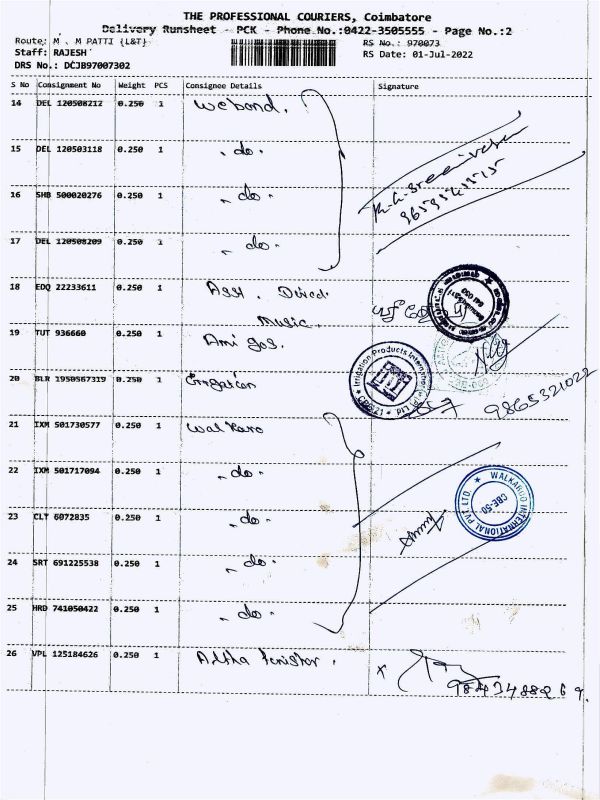 THE PROFESSIONAL COURIERS, Coimbatore
Delivery Runsheet - PCK - Phone No.:0422-3505555 - Page No.:2
Route: M . M PATTI {L&T}
RS No.: 970073
Staff: RAJESH
RS Date: 01-Jul-2022
DRS No.: DCJB97007302
S No Consignment No Weight PCS Consignee Details Signature
14 DEL 120508212 0.250 1 Webond.
15 DEL 120503118 0.250 1 - do -
16 SHB 500020276 0.250 1 - do -
17 DEL 120508209 0.250 1 - do -
18 EDQ 22233611 0.250 1 Asst. Direct
Music.
19 TUT 936660 0.250 1 Amigos.
20 BLR 1950567319 0.250 1 Irrigation
Irrigation Products International
9865321022
21 IXM 501730577 0.250 1 Walkaro
22 IXM 501717094 0.250 1 - do -
WALKAROO INTERNATIONAL PVT LTD
CBE-50
23 CLT 6072835 0.250 1 - do -
24 SRT 691225538 0.250 1 - do -
25 HRD 741050422 0.250 1 - do -
26 VPL 125184626 0.250 1